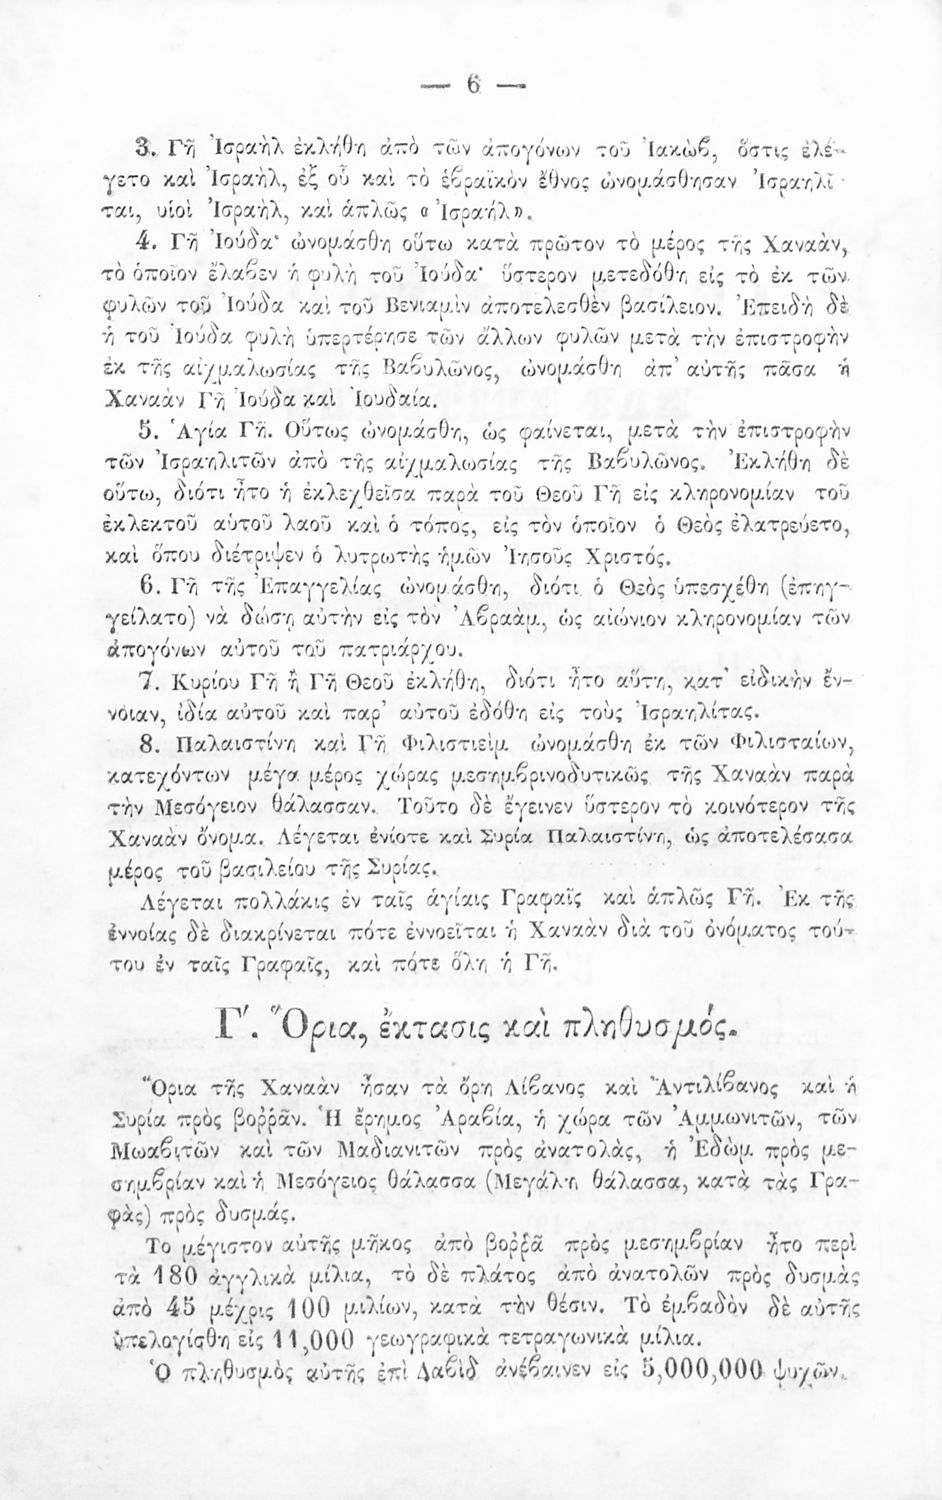 — 6 —
3. Γῆ Ἰσραὴλ ἐκλήθη ἀπὸ τῶν ἀπογόνων τοῦ Ἰακὼβ, ὅστις ἐλέ-
γετο καὶ Ἰσραὴλ, ἐξ οὗ καὶ τὸ ἑβραϊκὸν ἔθνος ὠνομάσθησαν Ἰσραηλῖ-
ται, υἱοὶ Ἰσραὴλ, καὶ ἁπλῶς «Ἰσραήλ».
4. Γῆ Ἰούδα· ὠνομάσθη οὕτω κατὰ πρῶτον τὸ μέρος τῆς Χαναὰν,
τὸ ὁποῖον ἔλαβεν ἡ φυλὴ τοῦ Ἰούδα· ὕστερον μετεδόθη εἰς τὸ ἐκ τῶν
φυλῶν τοῦ Ἰούδα καὶ τοῦ Βενιαμὶν ἀποτελεσθὲν βασίλειον. Ἐπειδὴ δὲ
ἡ τοῦ Ἰούδα φυλὴ ὑπερτέρησε τῶν ἄλλων φυλῶν μετὰ τὴν ἐπιστροφὴν
ἐκ τῆς αἰχμαλωσίας τῆς Βαβυλῶνος, ὠνομάσθη ἀπ' αὐτῆς πᾶσα ἡ
Χαναὰν Γῆ Ἰούδα καὶ Ἰουδαία.
5. Ἁγία Γῆ. Οὕτως ὠνομάσθη, ὡς φαίνεται, μετὰ τὴν ἐπιστροφὴν
τῶν Ἰσραηλιτῶν ἀπὸ τῆς αἰχμαλωσίας τῆς Βαβυλῶνος. Ἐκλήθη δὲ
οὕτω, διότι ἦτο ἡ ἐκλεχθεῖσα παρὰ τοῦ Θεοῦ Γῆ εἰς κληρονομίαν τοῦ
ἐκλεκτοῦ αὑτοῦ λαοῦ καὶ ὁ τόπος, εἰς τὸν ὁποῖον ὁ Θεὸς ἐλατρεύετο,
καὶ ὅπου διέτριψεν ὁ λυτρωτὴς ἡμῶν Ἰησοῦς Χριστός.
6. Γῆ τῆς Ἐπαγγελίας ὠνομάσθη, διότι ὁ Θεὸς ὑπεσχέθη (ἐπηγ-
γείλατο) νὰ δώσῃ αὐτὴν εἰς τὸν Ἀβραὰμ, ὡς αἰώνιον κληρονομίαν τῶν
ἀπογόνων αὐτοῦ τοῦ πατριάρχου.
7. Κυρίου Γῆ ἢ Γῆ Θεοῦ ἐκλήθη, διότι ἦτο αὕτη, κατ' εἰδικὴν ἔν-
νοιαν, ἰδία αὐτοῦ καὶ παρ' αὐτοῦ ἐδόθη εἰς τοὺς Ἰσραηλίτας.
8. Παλαιστίνη καὶ Γῆ Φιλιστιεὶμ ὠνομάσθη ἐκ τῶν Φιλισταίων,
κατεχόντων μέγα μέρος χώρας μεσημβρινοδυτικῶς τῆς Χαναὰν παρὰ
τὴν Μεσόγειον θάλασσαν. Τοῦτο δὲ ἔγεινεν ὕστερον τὸ κοινότερον τῆς
Χαναὰν ὄνομα. Λέγεται ἐνίοτε καὶ Συρία Παλαιστίνη, ὡς ἀποτελέσασα
μέρος τοῦ βασιλείου τῆς Συρίας.
Λέγεται πολλάκις ἐν ταῖς ἁγίαις Γραφαῖς καὶ ἁπλῶς Γῆ. Ἐκ τῆς
ἐννοίας δὲ διακρίνεται πότε ἐννοεῖται ἡ Χαναὰν διὰ τοῦ ὀνόματος τού-
του ἐν ταῖς Γραφαῖς, καὶ πότε ὅλη ἡ Γῆ.
Γ΄. Ὅρια, ἔκτασις καὶ πληθυσμός.
Ὅρια τῆς Χαναὰν ἦσαν τὰ ὄρη Λίβανος καὶ Ἀντιλίβανος καὶ ἡ
Συρία πρὸς βοῤῥᾶν. Ἡ ἔρημος Ἀραβία, ἡ χώρα τῶν Ἀμμωνιτῶν, τῶν
Μωαβιτῶν καὶ τῶν Μαδιανιτῶν πρὸς ἀνατολὰς, ἡ Ἐδὼμ πρὸς με-
σημβρίαν καὶ ἡ Μεσόγειος θάλασσα (Μεγάλη θάλασσα, κατὰ τὰς Γρα-
φὰς) πρὸς δυσμάς.
Το μέγιστον αὐτῆς μῆκος ἀπὸ βοῤῥᾶ πρὸς μεσημβρίαν ἦτο περὶ
τὰ 180 ἀγγλικὰ μίλια, τὸ δὲ πλάτος ἀπὸ ἀνατολῶν πρὸς δυσμὰς
ἀπὸ 45 μέχρις 100 μιλίων, κατὰ τὴν θέσιν. Τὸ ἐμβαδὸν δὲ αὐτῆς
ὑπελογίσθη εἰς 11,000 γεωγραφικὰ τετραγωνικὰ μίλια.
Ὁ πληθυσμὸς αὐτῆς ἐπὶ Δαβὶδ ἀνέβαινεν εἰς 5,000,000 ψυχῶν.